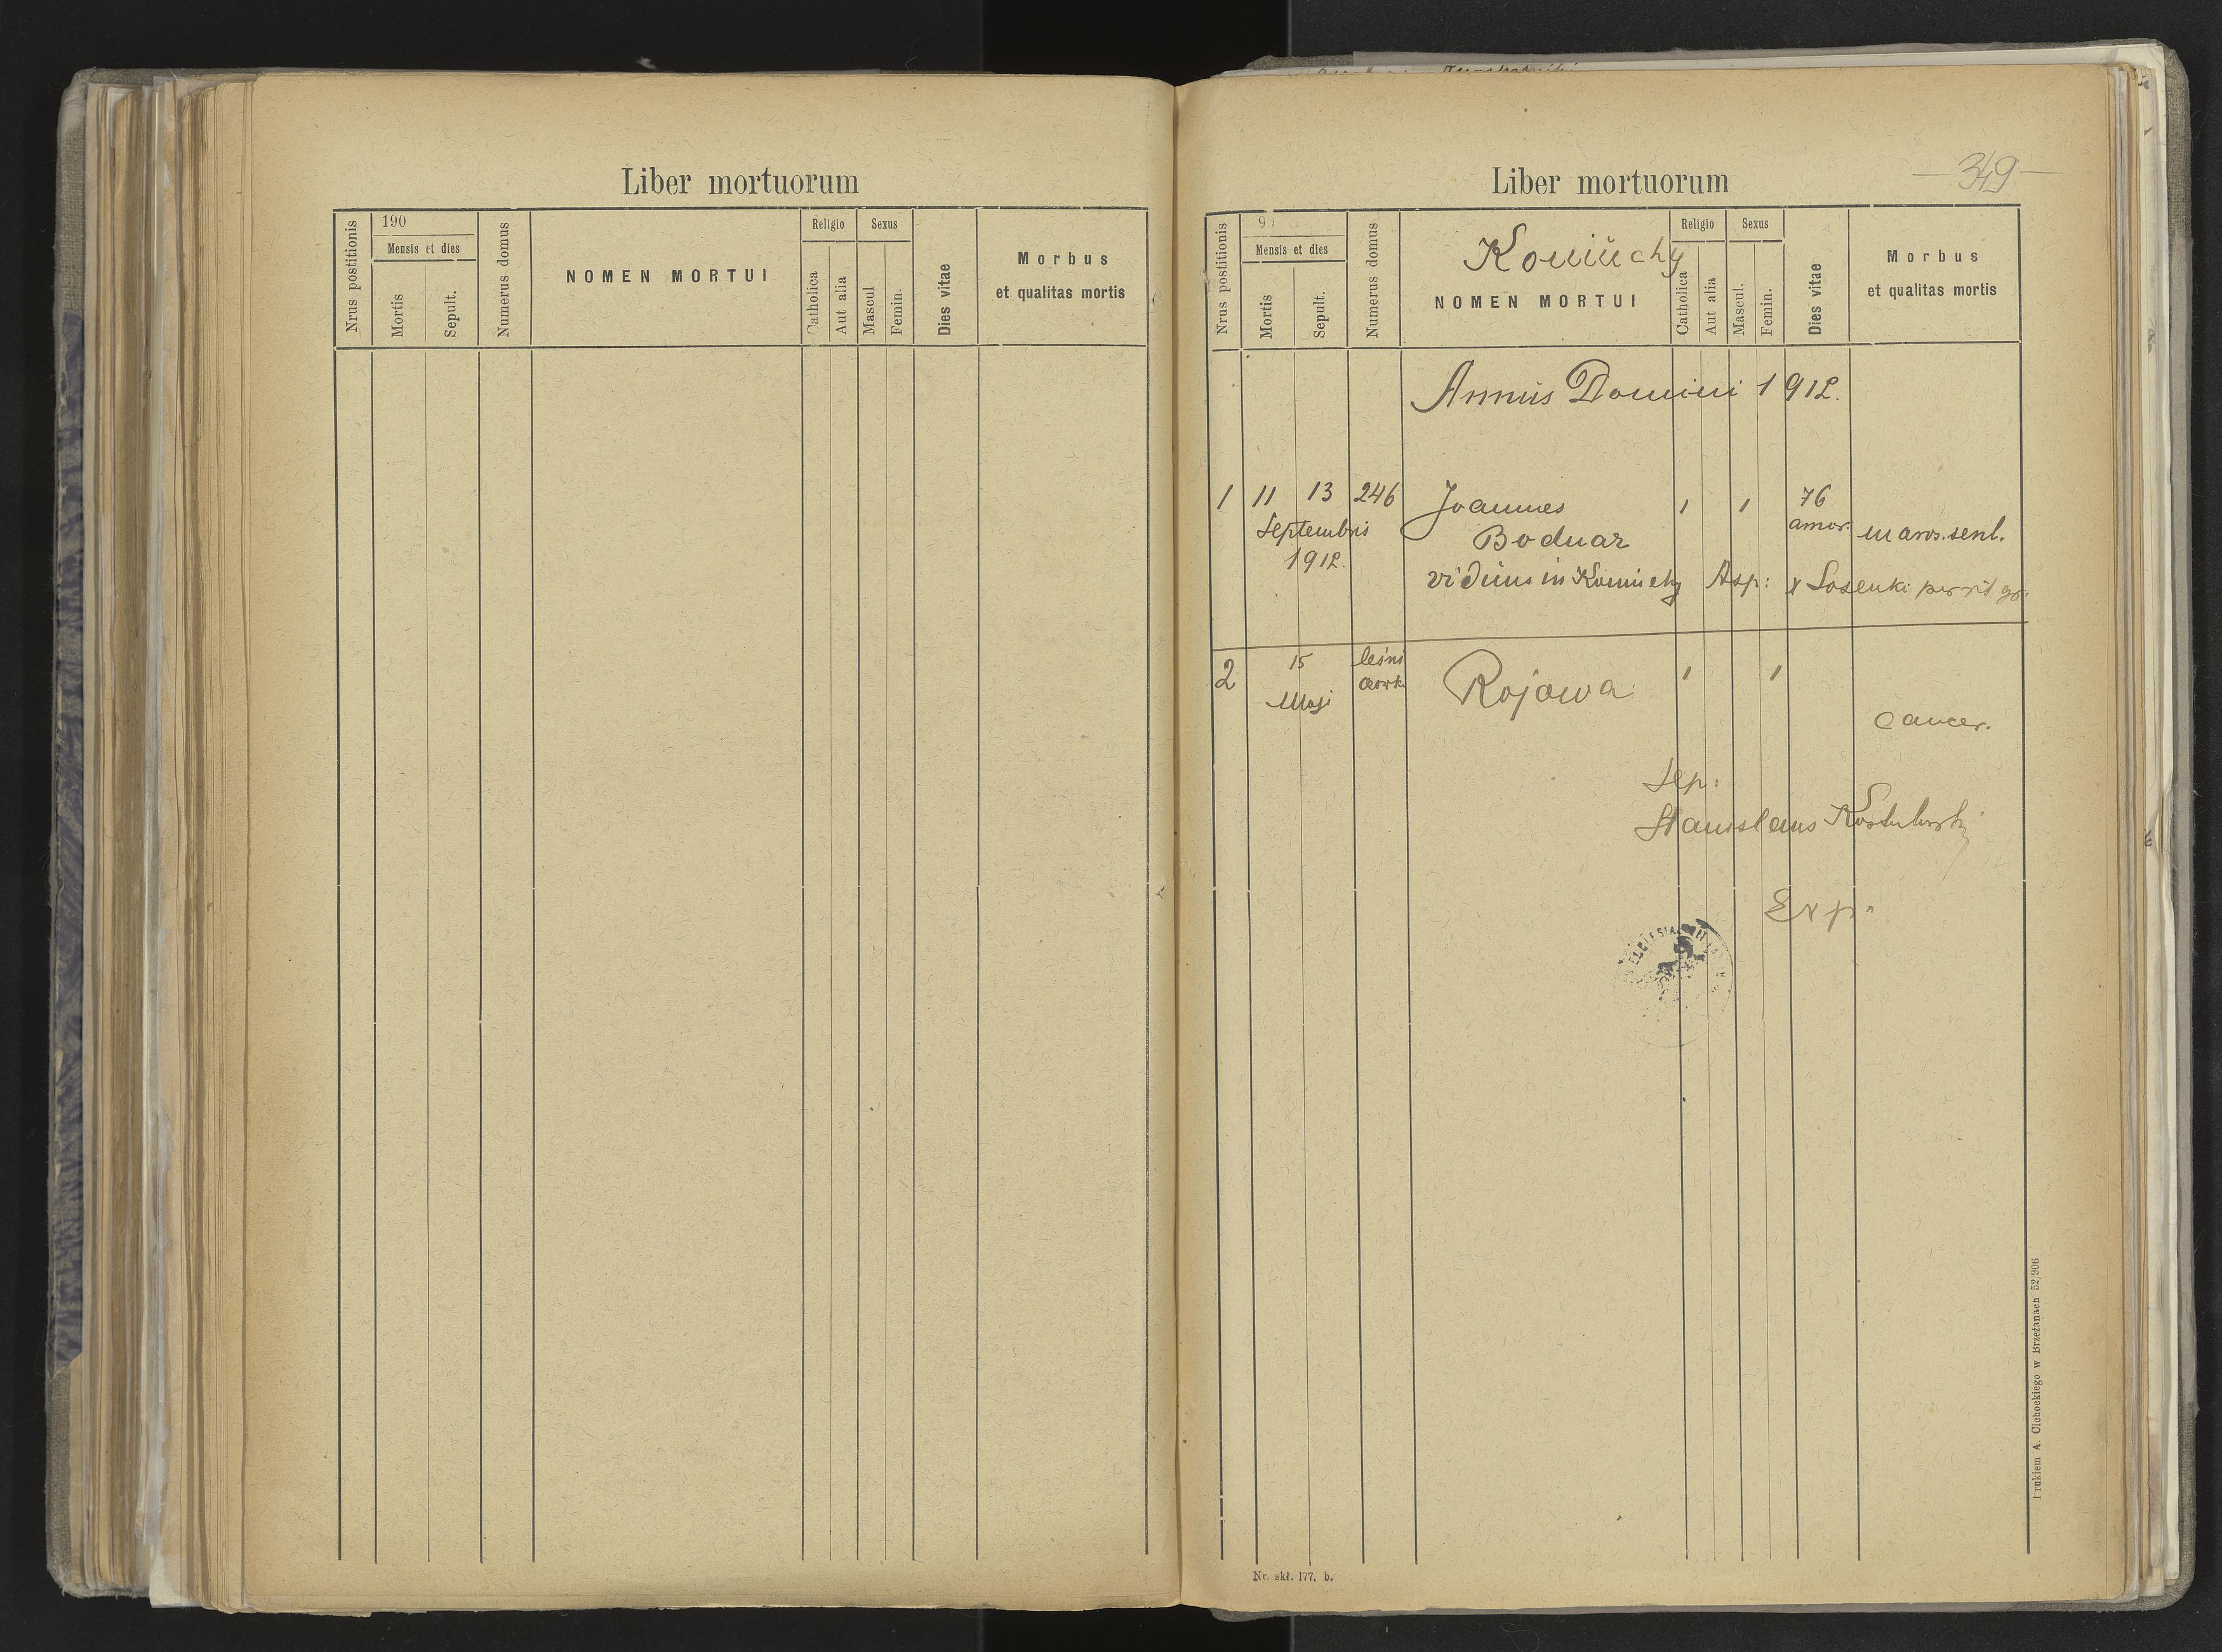 Liber mortuorum
Nrus postitionis
190
Mensis et dies
Mortis
Sepult.
Numerus domus
NOMEN MORTUI
Religio
Catholica
Aut alia
Sexus
Mascul
Femin.
Dies vitae
Morbus
et qualitas mortis
Liber mortuorum
— 349 —
Nrus postitionis
9
Mensis et dies
Mortis
Sepult.
Numerus domus
Koniuchy
NOMEN MORTUI
Religio
Catholica
Aut alia
Sexus
Mascul.
Femin.
Dies vitae
Morbus
et qualitas mortis
Annus Domini 1912.
1 11 13 246 Joannes 1 1 76
Septembris Bodnar annor. maras. senl.
1912.
viduus in Koniuchy Asp: Losenki per rit gr.
2 15 leśni Rojowa 1 1
Maji
cancer.
Sep:
Stanislaus
Exp:
ECCLESIA
Drukiem A. Cichockiego w Brzeżanach 52/906
Nr. skł. 177. b.